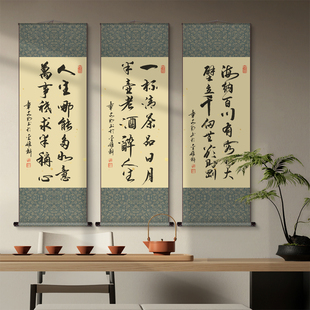 海納百川有容乃大
壁立千仞無欲則剛
一杯清茶品日月
半壺老酒醉人生
人生哪能多如意
萬事祇求半稱心